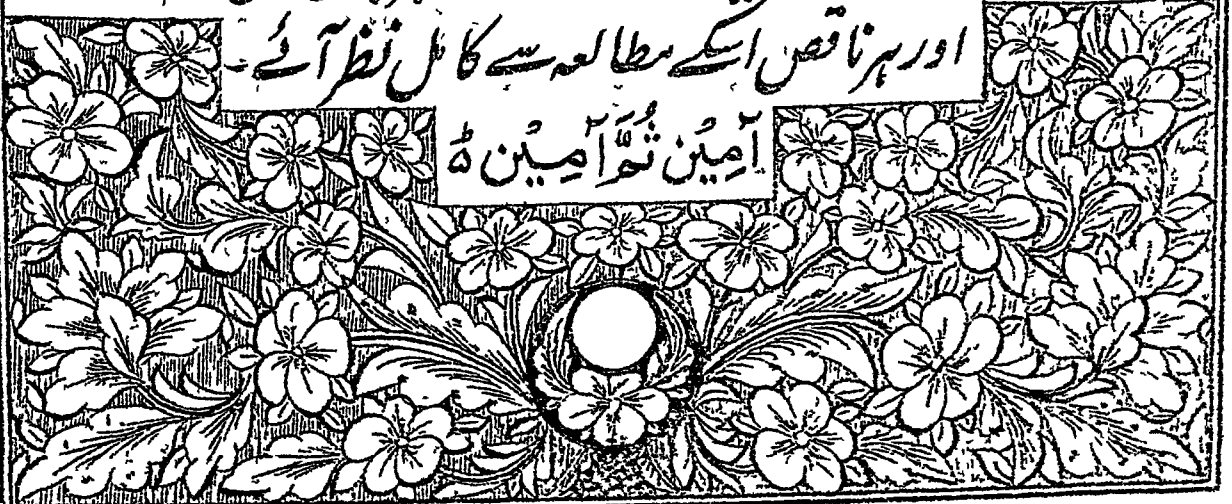 اور ہر ناقص اسکے مطالعہ سے کامل نظر آئے۔
اٰمِیْن ثُمَّ اٰمِیْن ۵ؕ